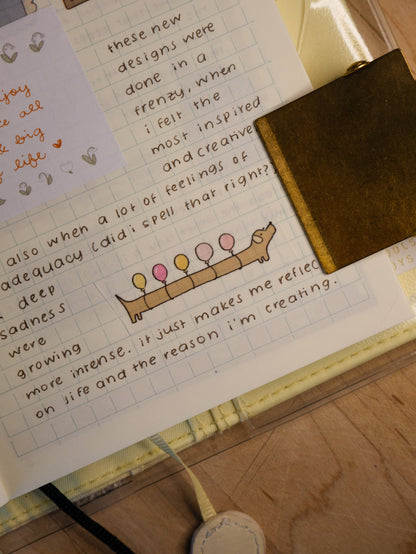 these new
designs were
done in a
frenzy, when
i felt the
most inspired
and creative
also when a lot of feelings of
adequacy (did i spell that right?)
deep
sadness
were
growing
more intense. it just makes me reflec
on life and the reason i'm creating.
joy
all
big
life